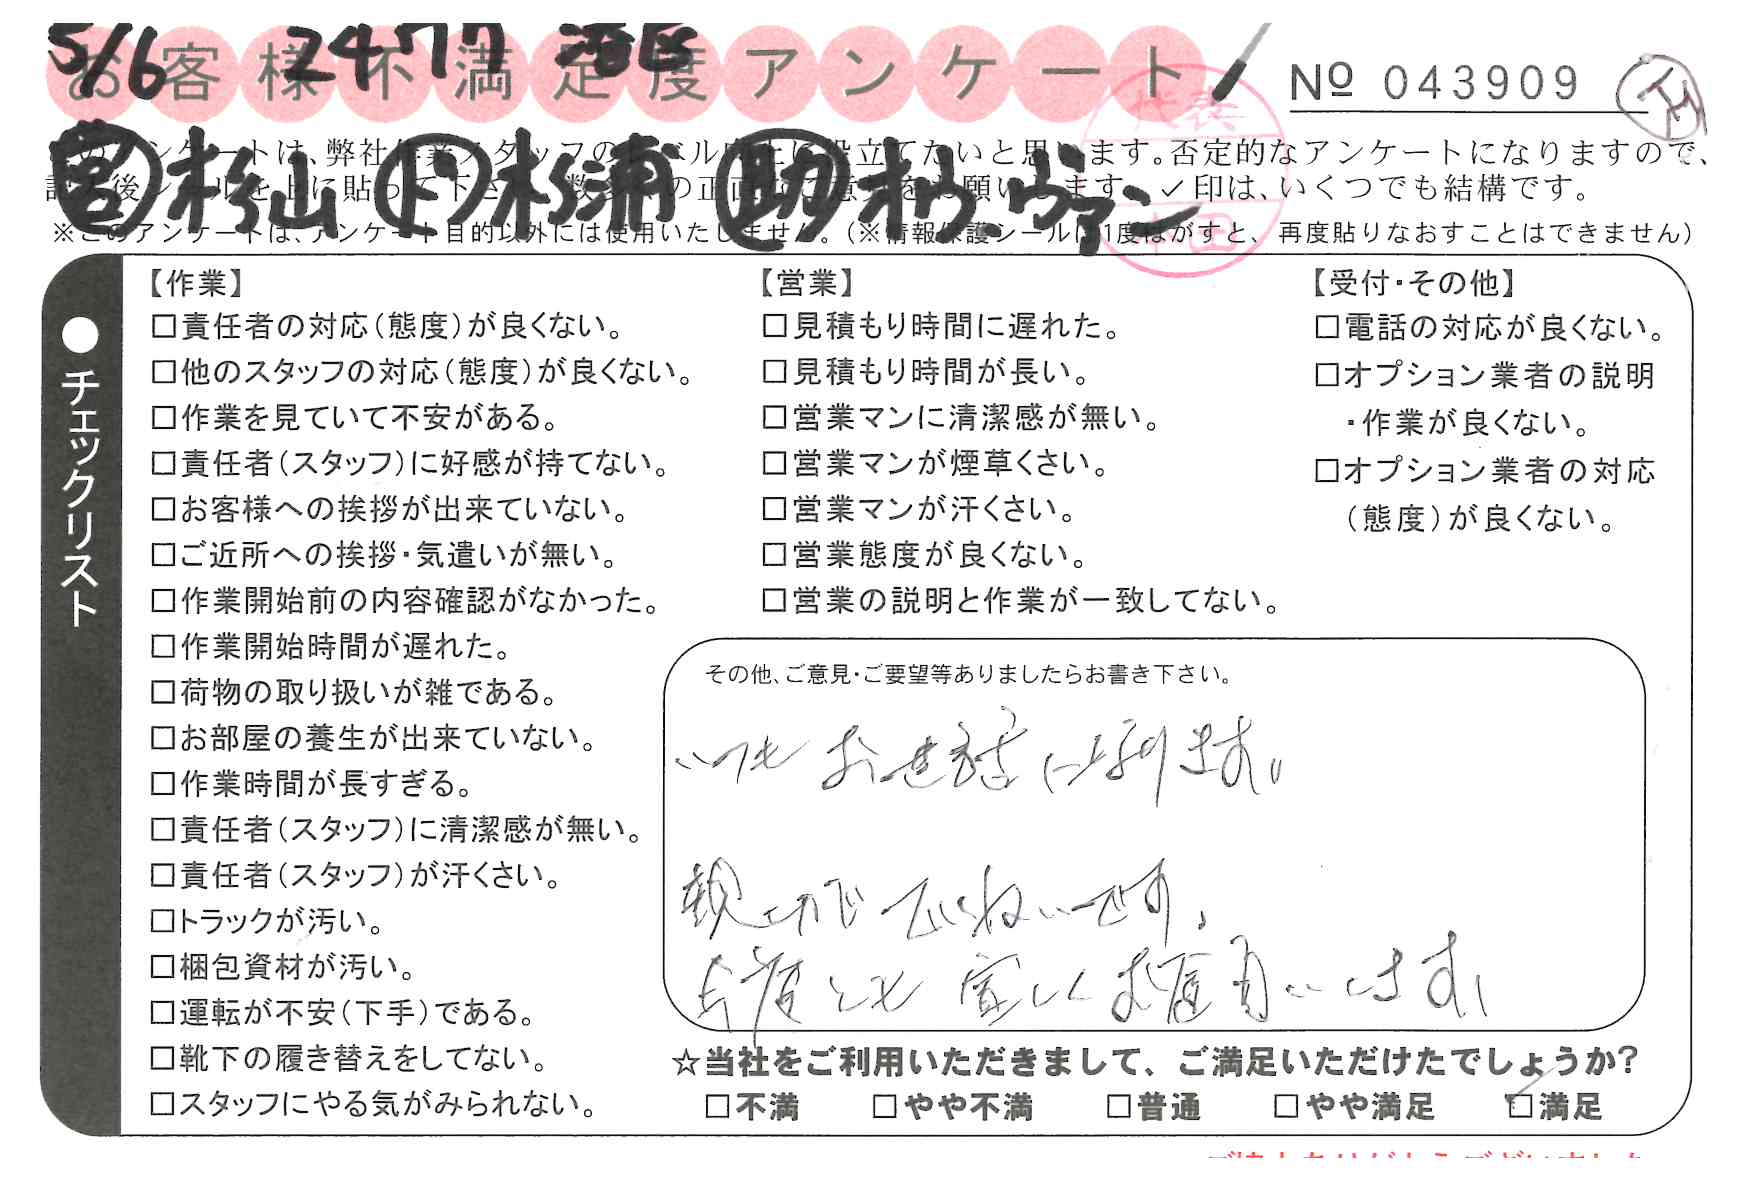 5/6 2477
お客様不満足度アンケート
Nº 043909
このアンケートは、弊社作業スタッフのレベル向上に役立てたいと思います。否定的なアンケートになりますので、
記入後シールを上に貼って下さい。数多くの正直なご意見をお願いします。✓印は、いくつでも結構です。
営 杉山 ド 杉浦 助 オウ ヴァン
※このアンケートは、アンケート目的以外には使用いたしません。(※情報保護シールは1度はがすと、再度貼りなおすことはできません)
代表
本田
●チェックリスト
【作業】
□責任者の対応(態度)が良くない。
□他のスタッフの対応(態度)が良くない。
□作業を見ていて不安がある。
□責任者(スタッフ)に好感が持てない。
□お客様への挨拶が出来ていない。
□ご近所への挨拶・気遣いが無い。
□作業開始前の内容確認がなかった。
□作業開始時間が遅れた。
□荷物の取り扱いが雑である。
□お部屋の養生が出来ていない。
□作業時間が長すぎる。
□責任者(スタッフ)に清潔感が無い。
□責任者(スタッフ)が汗くさい。
□トラックが汚い。
□梱包資材が汚い。
□運転が不安(下手)である。
□靴下の履き替えをしてない。
□スタッフにやる気がみられない。
【営業】
□見積もり時間に遅れた。
□見積もり時間が長い。
□営業マンに清潔感が無い。
□営業マンが煙草くさい。
□営業マンが汗くさい。
□営業態度が良くない。
□営業の説明と作業が一致してない。
【受付・その他】
□電話の対応が良くない。
□オプション業者の説明
・作業が良くない。
□オプション業者の対応
(態度)が良くない。
その他、ご意見・ご要望等ありましたらお書き下さい。
いつもお世話になります。
親切でていねいです。
今度とも宜しくお願いします。
☆当社をご利用いただきまして、ご満足いただけたでしょうか?
□不満 □やや不満 □普通 □やや満足 ☑満足